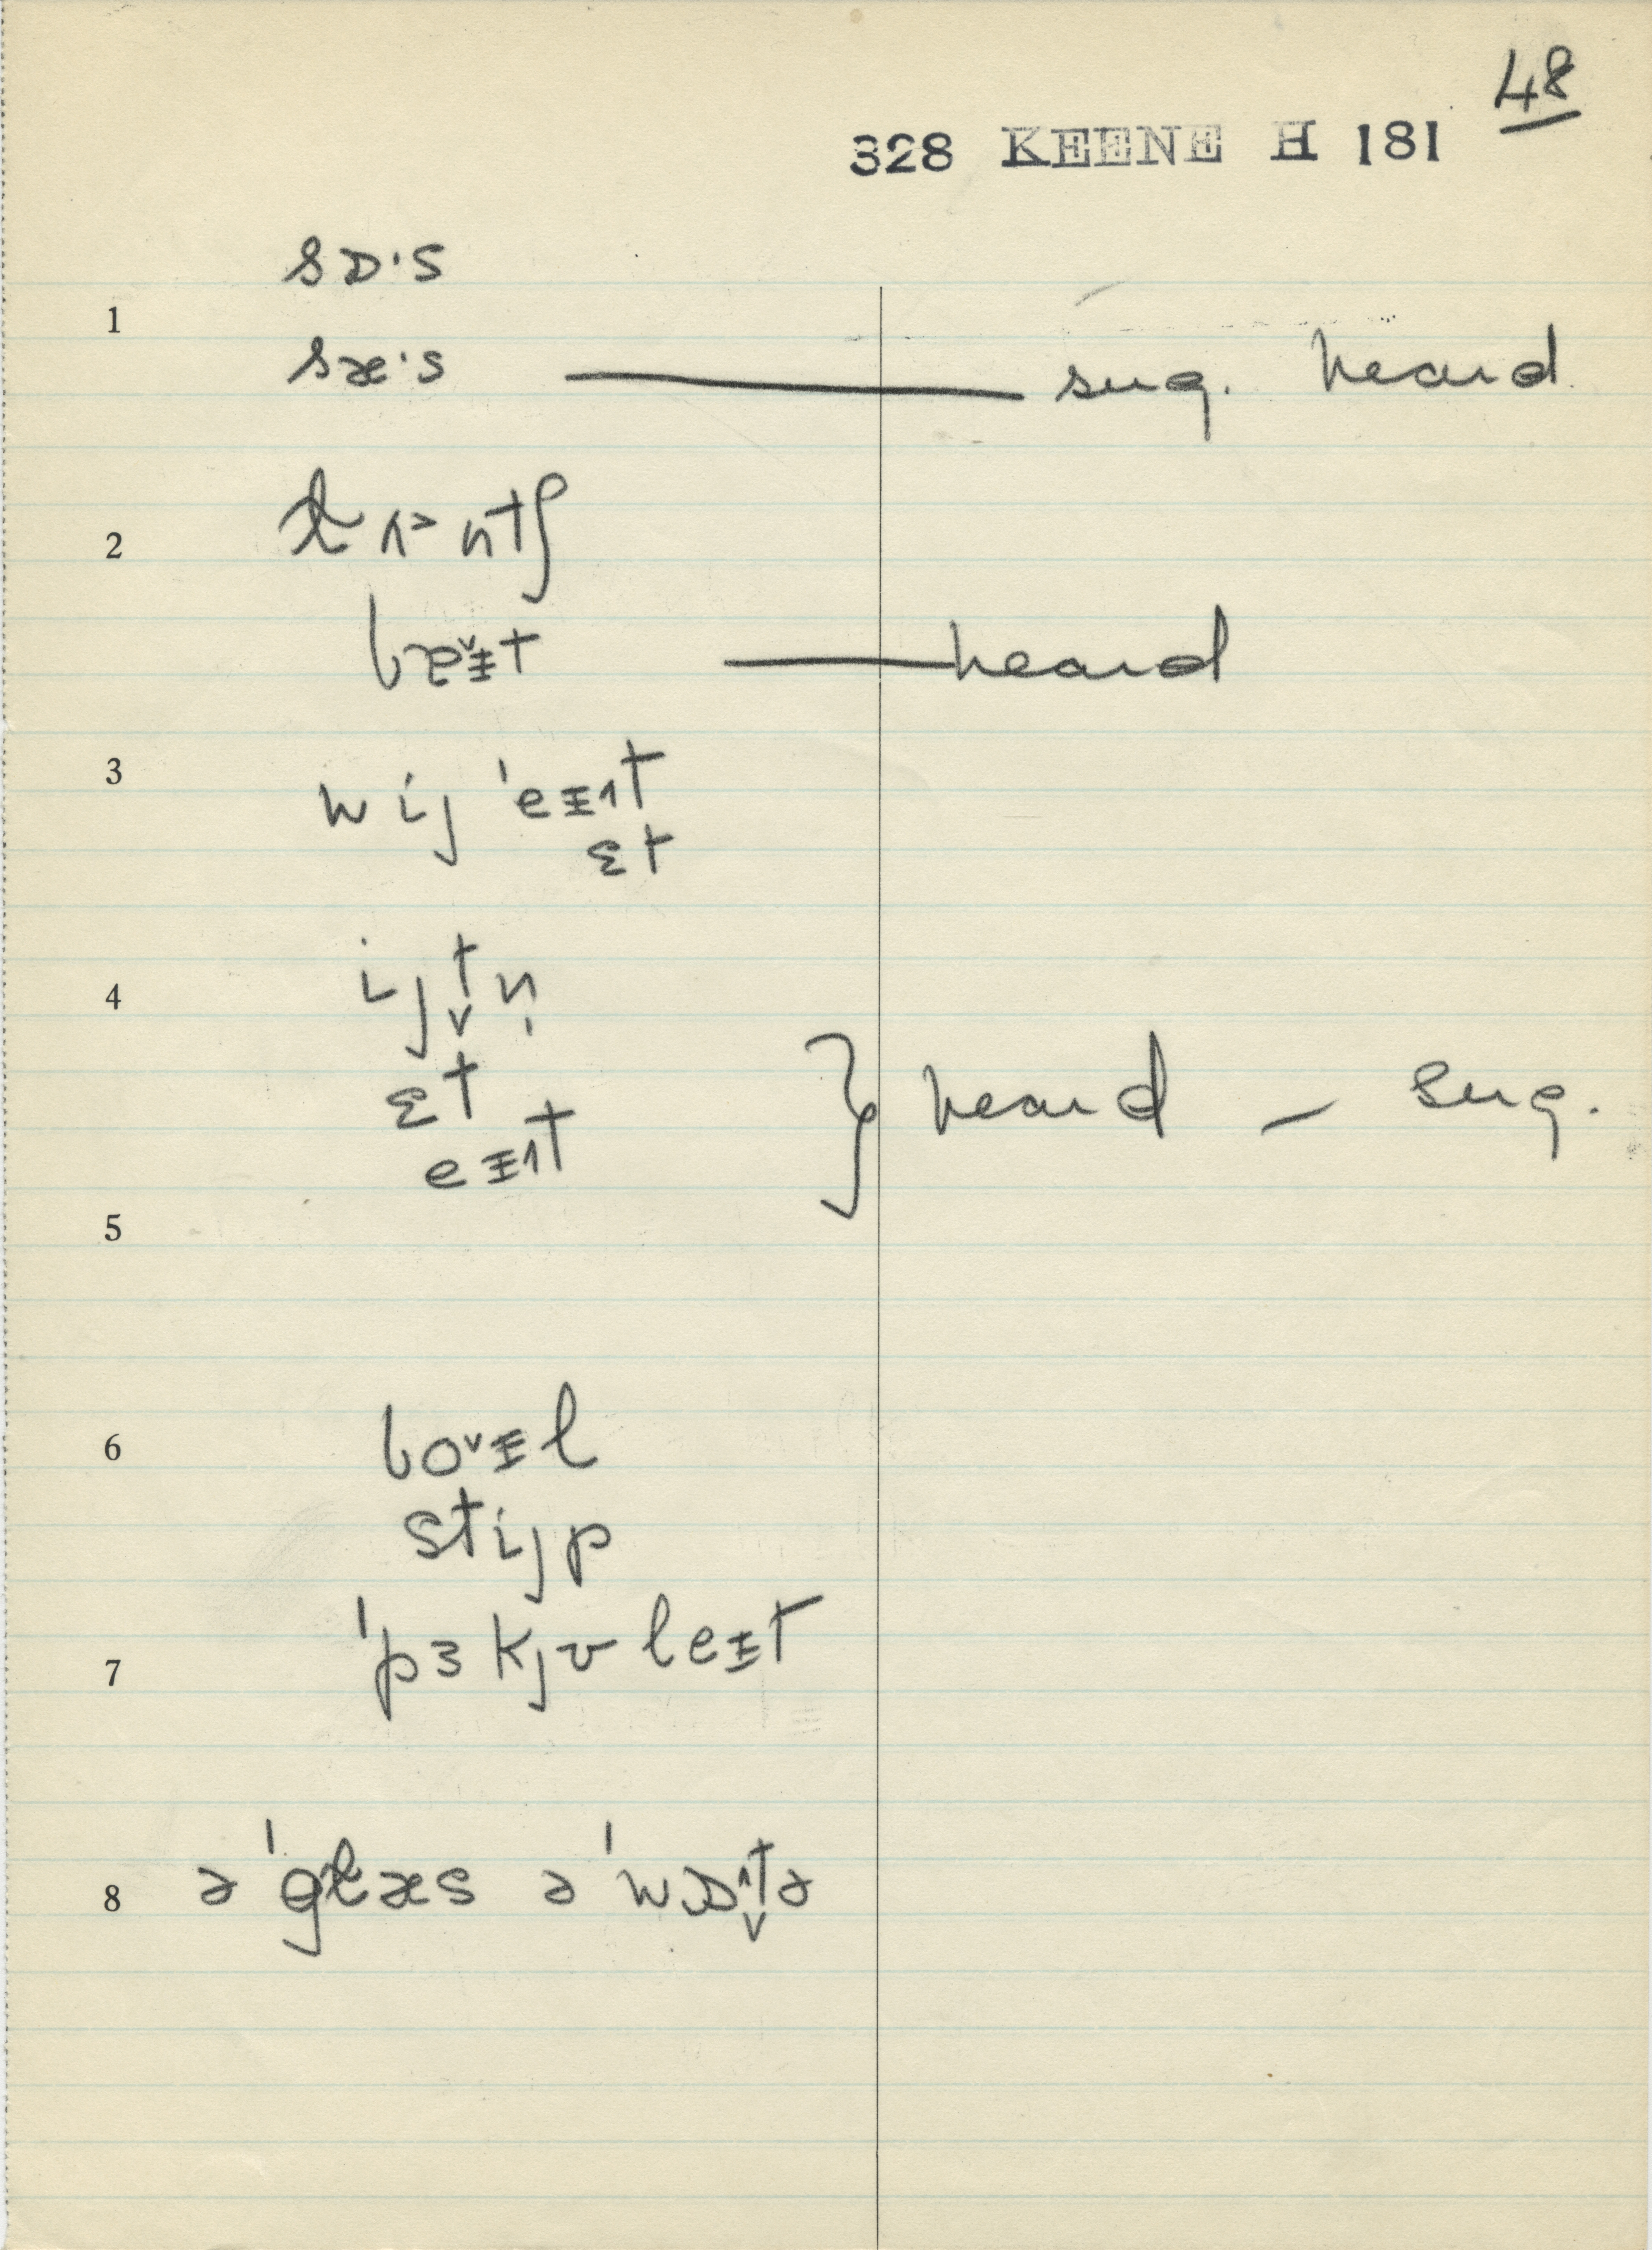 48
328 KEENE H 181
sɒ·s
1
sæ·s — sug. heard
2
lʌ˃ntʃ
bɐ˅ɪt — heard
3
wij 'eɪt
ɛt
4
ijt̬n̩
ɛt
eɪt
} heard – sug.
5
6
bo˅ɪl
stijp
7
'pɜkjʊleɪt
8
ə'glæs ə'wɒt̬ə